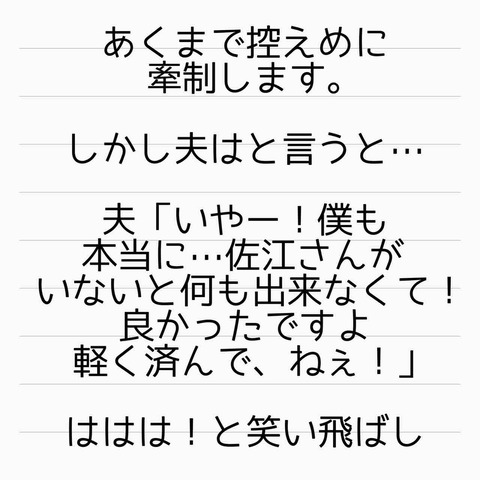 あくまで控えめに
牽制します。
しかし夫はと言うと…
夫「いやー！僕も
本当に…佐江さんが
いないと何も出来なくて！
良かったですよ
軽く済んで、ねぇ！」
ははは！と笑い飛ばし